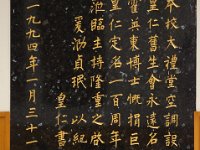 本校大禮堂空調設
皇仁舊生會永遠名
黃兵東博士慨捐巨
皇仁定名一百周年
蒞臨主持隆重之啓
爰泐貞珉以紀
皇仁書
一九九四年一月三十一